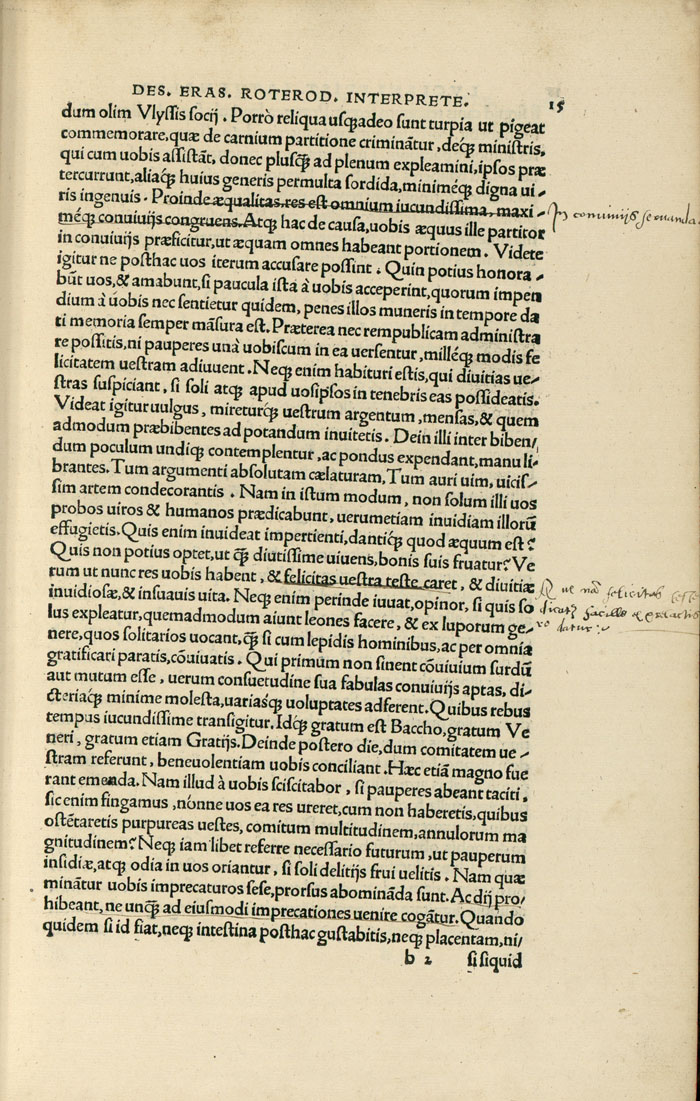 DES. ERAS. ROTEROD. INTERPRETE. 15
dum olim Vlyssis socij . Porrò reliqua usq̃adeo sunt turpia ut pigeat
commemorare, quæ de carnium partitione criminãtur, deq̃ ministris,
qui cum uobis assistãt, donec plusq̃ ad plenum expleamini, ipsos præ
tercurrunt, aliaq̃ huius generis permulta sordida, miniméq̃ digna ui-
ris ingenuis . Proinde æqualitas res est omnium iucundissima, maxi-
méq̃ conuiuijs congruens. Atq̃ hac de causa, uobis æquus ille partitor
in conuiuijs præficitur, ut æquam omnes habeant portionem . Videte
igitur ne posthac uos iterum accusare possint . Quin potius honora-
bũt uos, & amabunt, si paucula ista à uobis acceperint, quorum impen
dium à uobis nec sentietur quidem, penes illos muneris in tempore da
ti memoria semper mãsura est. Præterea nec rempublicam administra
re possitis, ni pauperes unà uobiscum in ea uersentur, milléq̃ modis fe
licitatem uestram adiuuent . Neq̃ enim habituri estis, qui diuitias ue-
stras suspiciant, si soli atq̃ apud uosipsos in tenebris eas possideatis.
Videat igitur uulgus, mireturq̃ uestrum argentum, mensas, & quem
admodum præbibentes ad potandum inuitetis . Dein illi inter biben/
dum poculum undiq̃ contemplentur, ac pondus expendant, manu li-
brantes. Tum argumenti absolutam cælaturam, Tum auri uim, uicis-
sim artem condecorantis . Nam in istum modum, non solum illi uos
probos uiros & humanos prædicabunt, uerumetiam inuidiam illorũ
effugietis. Quis enim inuideat impertienti, dantiq̃ quod æquum est?
Quis non potius optet, ut q̃ diutissime uiuens, bonis suis fruatur? Ve
rum ut nunc res uobis habent, & felicitas uestra teste caret, & diuitiæ
inuidiosæ, & insuauis uita. Neq̃ enim perinde iuuat, opinor, si quis so
lus expleatur, quemadmodum aiunt leones facere, & ex luporum ge-
nere, quos solitarios uocant, q̃ si cum lepidis hominibus, ac per omnia
gratificari paratis, cõuiuatis . Qui primum non sinent cõuiuium surdũ
aut mutum esse, uerum consuetudine sua fabulas conuiuijs aptas, di-
cteriaq̃ minime molesta, uariasq̃ uoluptates adferent. Quibus rebus
tempus iucundissime transigitur. Idq̃ gratum est Baccho, gratum Ve
neri, gratum etiam Gratijs. Deinde postero die, dum comitatem ue-
stram referunt, beneuolentiam uobis conciliant . Hæc etiã magno fue
rant emenda. Nam illud à uobis sciscitabor, si pauperes abeant taciti,
sic enim fingamus, nónne uos ea res ureret, cum non haberetis, quibus
ostẽtaretis purpureas uestes, comitum multitudinem, annulorum ma
gnitudinem? Neq̃ iam libet referre necessario futurum, ut pauperum
insidiæ, atq̃ odia in uos oriantur, si soli delitijs frui uelitis . Nam quæ
minãtur uobis imprecaturos sese, prorsus abominãda sunt. Ac dij pro/
hibeant, ne unq̃ ad eiusmodi imprecationes uenire cogãtur. Quando
quidem si id fiat, neq̃ intestina posthac gustabitis, neq̃ placentam, ni/
b 2 si siquid
In conuiuijs seruanda